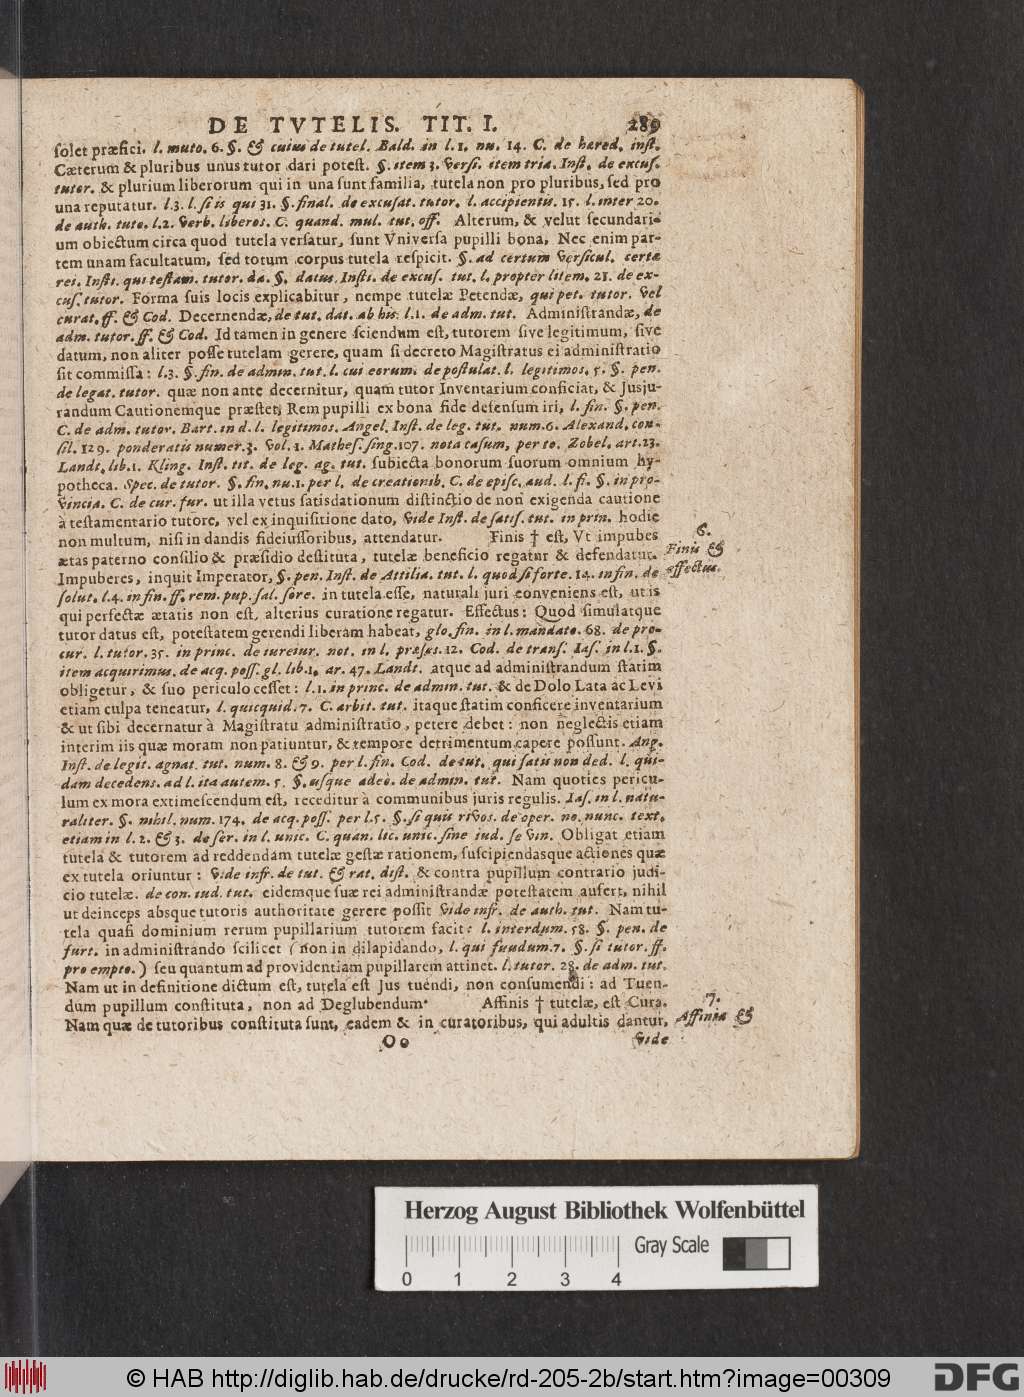 DE TVTELIS. TIT. I. 289
solet præfici. l. muto. 6. §. & cuius de tutel. Bald. in l. 1. nu. 14. C. de hæred. inst.
Cæterum & pluribus unus tutor dari potest. §. item 3. versi. item tria. Inst. de excus.
tutor. & plurium liberorum qui in una sunt familia, tutela non pro pluribus, sed pro
una reputatur. l.3. l. si is qui 31. §. final. de excusat. tutor. l. accipientis. 15. l. inter 20.
de auth. tuto. l.2. verb. liberos. C. quand. mul. tut. off. Alterum, & velut secundari-
um obiectum circa quod tutela versatur, sunt Vniversa pupilli bona, Nec enim par-
tem unam facultatum, sed totum corpus tutela respicit. §. ad certum versicul. certæ
rei. Insti. qui testam. tutor. da. §. datus. Insti. de excus. tut. l. propter litem. 21. de ex-
cus. tutor. Forma suis locis explicabitur, nempe tutelæ Petendæ, qui pet. tutor. vel
curat. ff. & Cod. Decernendæ, de tut. dat. ab his. l.1. de adm. tut. Administrandæ, de
adm. tutor. ff. & Cod. Id tamen in genere sciendum est, tutorem sive legitimum, sive
datum, non aliter posse tutelam gerere, quam si decreto Magistratus ei administratio
sit commissa: l.3. §. fin. de admin. tut. l. cui eorum. de postulat. l. legitimos. 5. §. pen.
de legat. tutor. quæ non ante decernitur, quam tutor Inventarium conficiat, & Jusju-
randum Cautionemque præstet, Rem pupilli ex bona fide defensum iri, l. fin. §. pen.
C. de adm. tutor. Bart. in d. l. legitimos. Angel. Inst. de leg. tut. num. 6. Alexand. con-
sil. 129. ponderatis numer. 3. Vol. 1. Mathes. sing. 107. nota casum, per to. Zobel. art. 23.
Landt. lib. 1. Kling. Inst. tit. de leg. ag. tut. subiecta bonorum suorum omnium hy-
potheca. Spec. de tutor. §. fin. nu. 1. per l. de creationib. C. de episc. aud. l. fi. §. in pro-
vincia. C. de cur. fur. ut illa vetus satisdationum distinctio de non exigenda cautione
à testamentario tutore, vel ex inquisitione dato, vide Inst. de satis. tut. in prin. hodie
non multum, nisi in dandis fideiussoribus, attendatur. Finis † est, Vt impubes
ætas paterno consilio & præsidio destituta, tutelæ beneficio regatur & defendatur.
6.
Finis &
effectus.
Impuberes, inquit Imperator, §. pen. Inst. de Attilia. tut. l. quod si forte. 14. in fin. de
solut. l.4. in fin. ff. rem. pup. sal. fore. in tutela esse, naturali juri conveniens est, ut is
qui perfectæ ætatis non est, alterius curatione regatur. Effectus: Quod simulatque
tutor datus est, potestatem gerendi liberam habeat, glo. fin. in l. mandato. 68. de pro-
cur. l. tutor. 35. in princ. de iureiur. not. in l. præses. 12. Cod. de trans. Ias. in l. 1. §.
item acquirimus. de acq. poss. gl. lib. 1. ar. 47. Landt. atque ad administrandum statim
obligetur, & suo periculo cesset: l.1. in princ. de admin. tut. & de Dolo Lata ac Levi
etiam culpa teneatur, l. quicquid. 7. C. arbit. tut. itaque statim conficere inventarium
& ut sibi decernatur à Magistratu administratio, petere debet: non neglectis etiam
interim iis quæ moram non patiuntur, & tempore detrimentum capere possunt. Ang.
Inst. de legit. agnat. tut. num. 8. & 9. per l. fin. Cod. de tut. qui satis non ded. l. qui-
dam decedens. ad l. ita autem. 5. §. usque adeò. de admin. tut. Nam quoties pericu-
lum ex mora extimescendum est, receditur à communibus juris regulis. Ias. in l. natu-
raliter. §. nihil. num. 174. de acq. poss. per l.5. §. si quis rivos. de oper. no. nunc. text.
etiam in l. 2. & 3. de fer. in l. unic. C. quan. lic. unic. sine iud. se vin. Obligat etiam
tutela & tutorem ad reddendam tutelæ gestæ rationem, suscipiendasque actiones quæ
ex tutela oriuntur: vide infr. de tut. & rat. dist. & contra pupillum contrario judi-
cio tutelæ. de con. iud. tut. eidemque suæ rei administrandæ potestatem aufert, nihil
ut deinceps absque tutoris authoritate gerere possit vide infr. de auth. tut. Nam tu-
tela quasi dominium rerum pupillarium tutorem facit: l. interdum. 58. §. pen. de
furt. in administrando scilicet (non in dilapidando, l. qui fundum. 7. §. si tutor. ff.
pro empto.) seu quantum ad providentiam pupillarem attinet. l. tutor. 28. de adm. tut.
Nam ut in definitione dictum est, tutela est Jus tuendi, non consumendi: ad Tuen-
dum pupillum constituta, non ad Deglubendum. Affinis † tutelæ, est Cura.
7.
Affinia &
Nam quæ de tutoribus constituta sunt, eadem & in curatoribus, qui adultis dantur,
Oo vide
Herzog August Bibliothek Wolfenbüttel
Gray Scale
0 1 2 3 4
© HAB http://diglib.hab.de/drucke/rd-205-2b/start.htm?image=00309
DFG